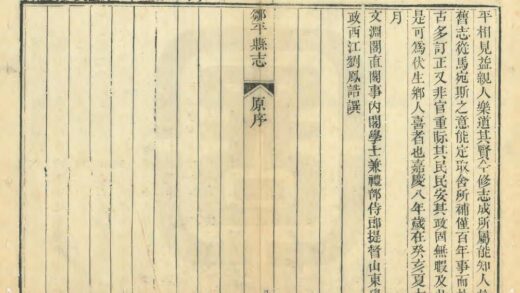 平相見益親人樂道其賢今修志成所屬能知人
舊志從馬宛斯之意能定取舍所補僅百年事而
古多訂正又非官重賑其民民安其政固無暇及
是可為伏生鄉人喜者也嘉慶八年歲在癸亥夏
月
文淵閣直閣事內閣學士兼禮部侍郎提督山東
政西江劉鳳誥撰
鄒平縣志
原序